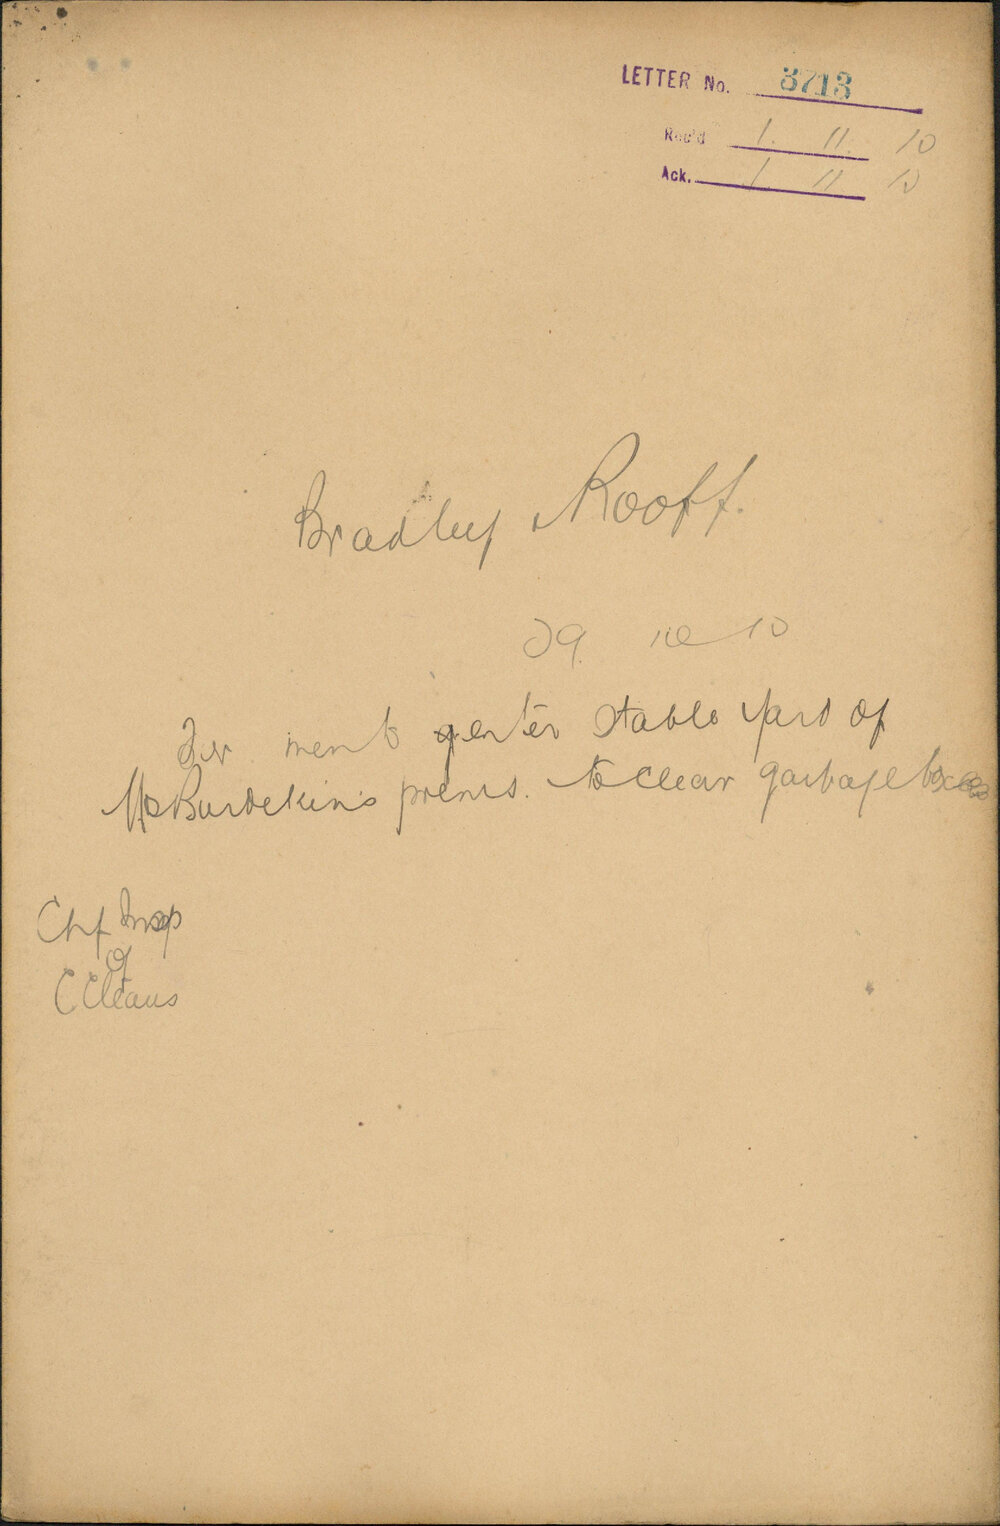 LETTER No. 3713
Rec'd 1. 11. 10
Ack. 1 11 10
Bradley Rooff.
29. 10 10
for men to enter stable yard of
Mrs Burdekin's prems. to clear garbage boxes
Chf Insp
of
C Cleans